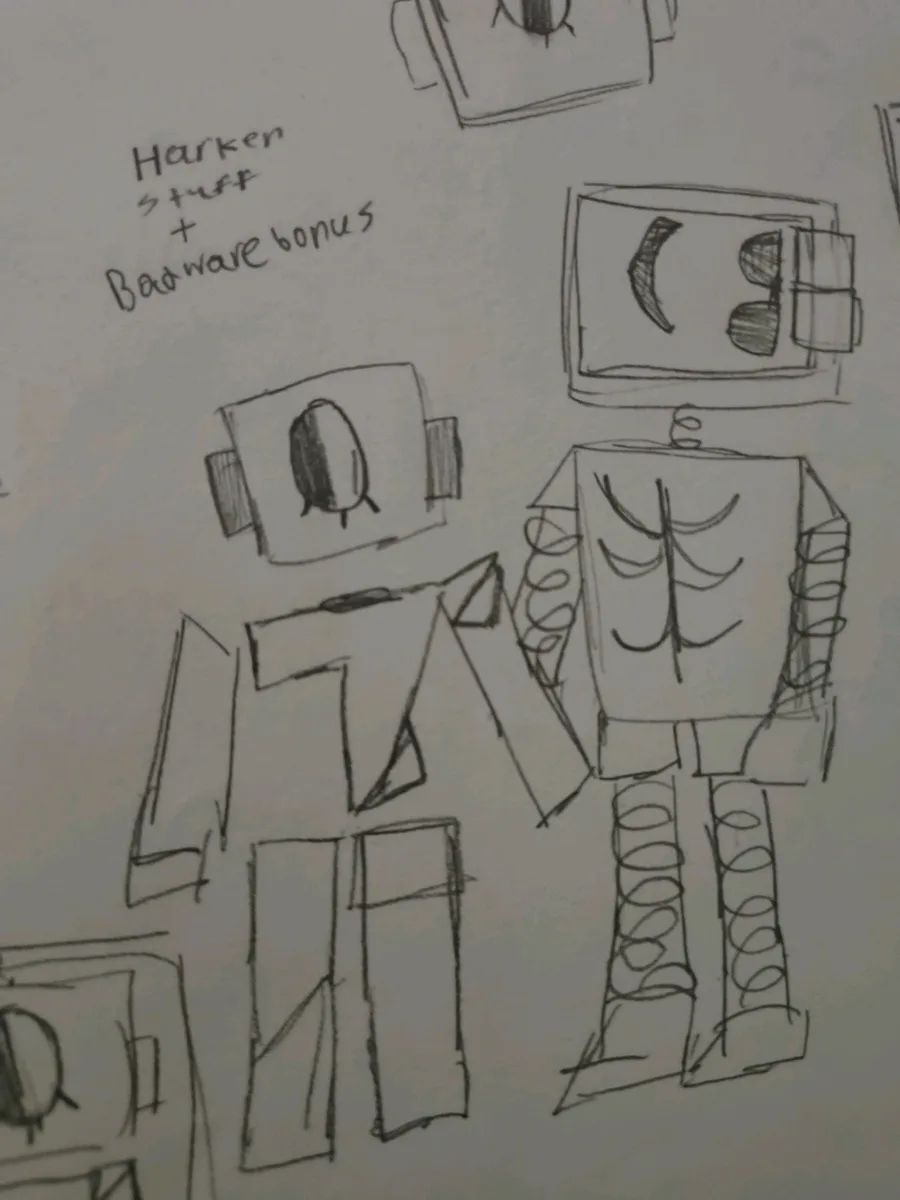 Harken
stuff
+
Badware bonus